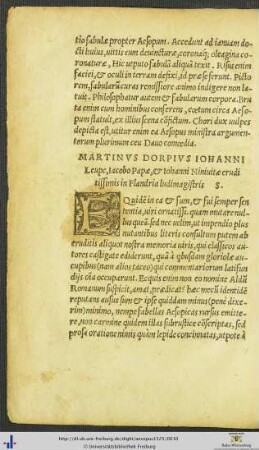 tio fabulæ propter Aesopum. Accedunt ad ianuam do-
cti huius, uittis eum deuincturæ, coronaq; oleagina co-
ronaturæ, Hic ut puto fabulā aliquā texit. Risus enim
faciei, & oculi in terram defixi, id præ se ferunt. Picto-
rem, fabularū curas remissiore animo indigere non la-
tuit. Philosophatur autem & fabularum corpora. Bruta
enim cum hominibus conferens, cœtum circa Aeso-
pum statuit, ex illius scena cōfictum. Chori dux uulpes
depicta est, utitur enim ea Aesopus ministra argumen-
torum plurimum ceu Dauo comœdia.
MARTINVS DORPIVS IOHANNI
Leupe, Iacobo Papæ, & Iohanni Niniuitæ erudi
tissimis in Flandria ludimagistris S.
EQuidē in ea & sum, & fui semper sen
tentia, uiri ornatissi. quam mutare nullus
queā. sed nec uelim, ut impendio plus
nutantibus literis consultum putem ab
eruditis aliquot nostra memoria uiris, qui classicos au-
tores castigate ediderunt, quā à gloriolæ au-
cupibus (nam alios taceo) qui commentariorum latifun
dijs oīa occuparunt. Ecquis enim non eo nomine Aldū
Romanum suspicit, amat, prædicat? hæc mecū identidē
reputans ausus sum & ipse quiddam minus (penè dixe
rim) minimo, nempe fabellas Aesopicas rursus emitte-
re, non carmine quidem illas subrustice cōscriptas, sed
prosa oratione nimis quàm lepide concinnatas, ut potè à
http://dl.ub.uni-freiburg.de/diglit/aesopus1521/0010
© Universitätsbibliothek Freiburg
Baden-Württemberg